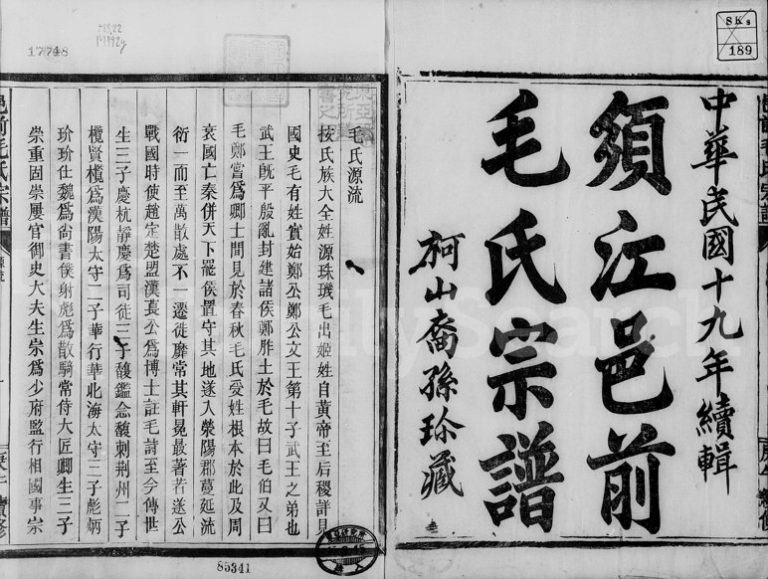 中華民國十九年續輯
須江邑前
毛氏宗譜
柯山裔孫珍藏
SKs
189
毛氏源流
按氏族大全姓源珠璣毛出姬姓自黃帝至后稷詳見
國史毛有姓實始鄭公鄭公文王第十子武王之弟也
武王既平殷亂封建諸侯鄭胙土於毛故曰毛伯又曰
毛鄭嘗為卿士間見於春秋毛氏受姓根本於此及周
衰國亡秦併天下罷侯置守其地遂入滎陽郡蔓延流
衍一而至萬散處不一遷徙靡常其軒冕最著者遂公
戰國時使趙定楚盟漢萇公為博士註毛詩至今傳世
生三子慶杭靜慶為司徒三子馥鑑念馥刺荆州二子
欖賢欖為漢陽太守二子華行華北海太守三子彪炳
玠玠仕魏為尚書僕射彪為散騎常侍大匠卿生三子
崇重固崇屢官御史大夫生宗為少府監行相國事宗
邑前毛氏宗譜
17748
85341